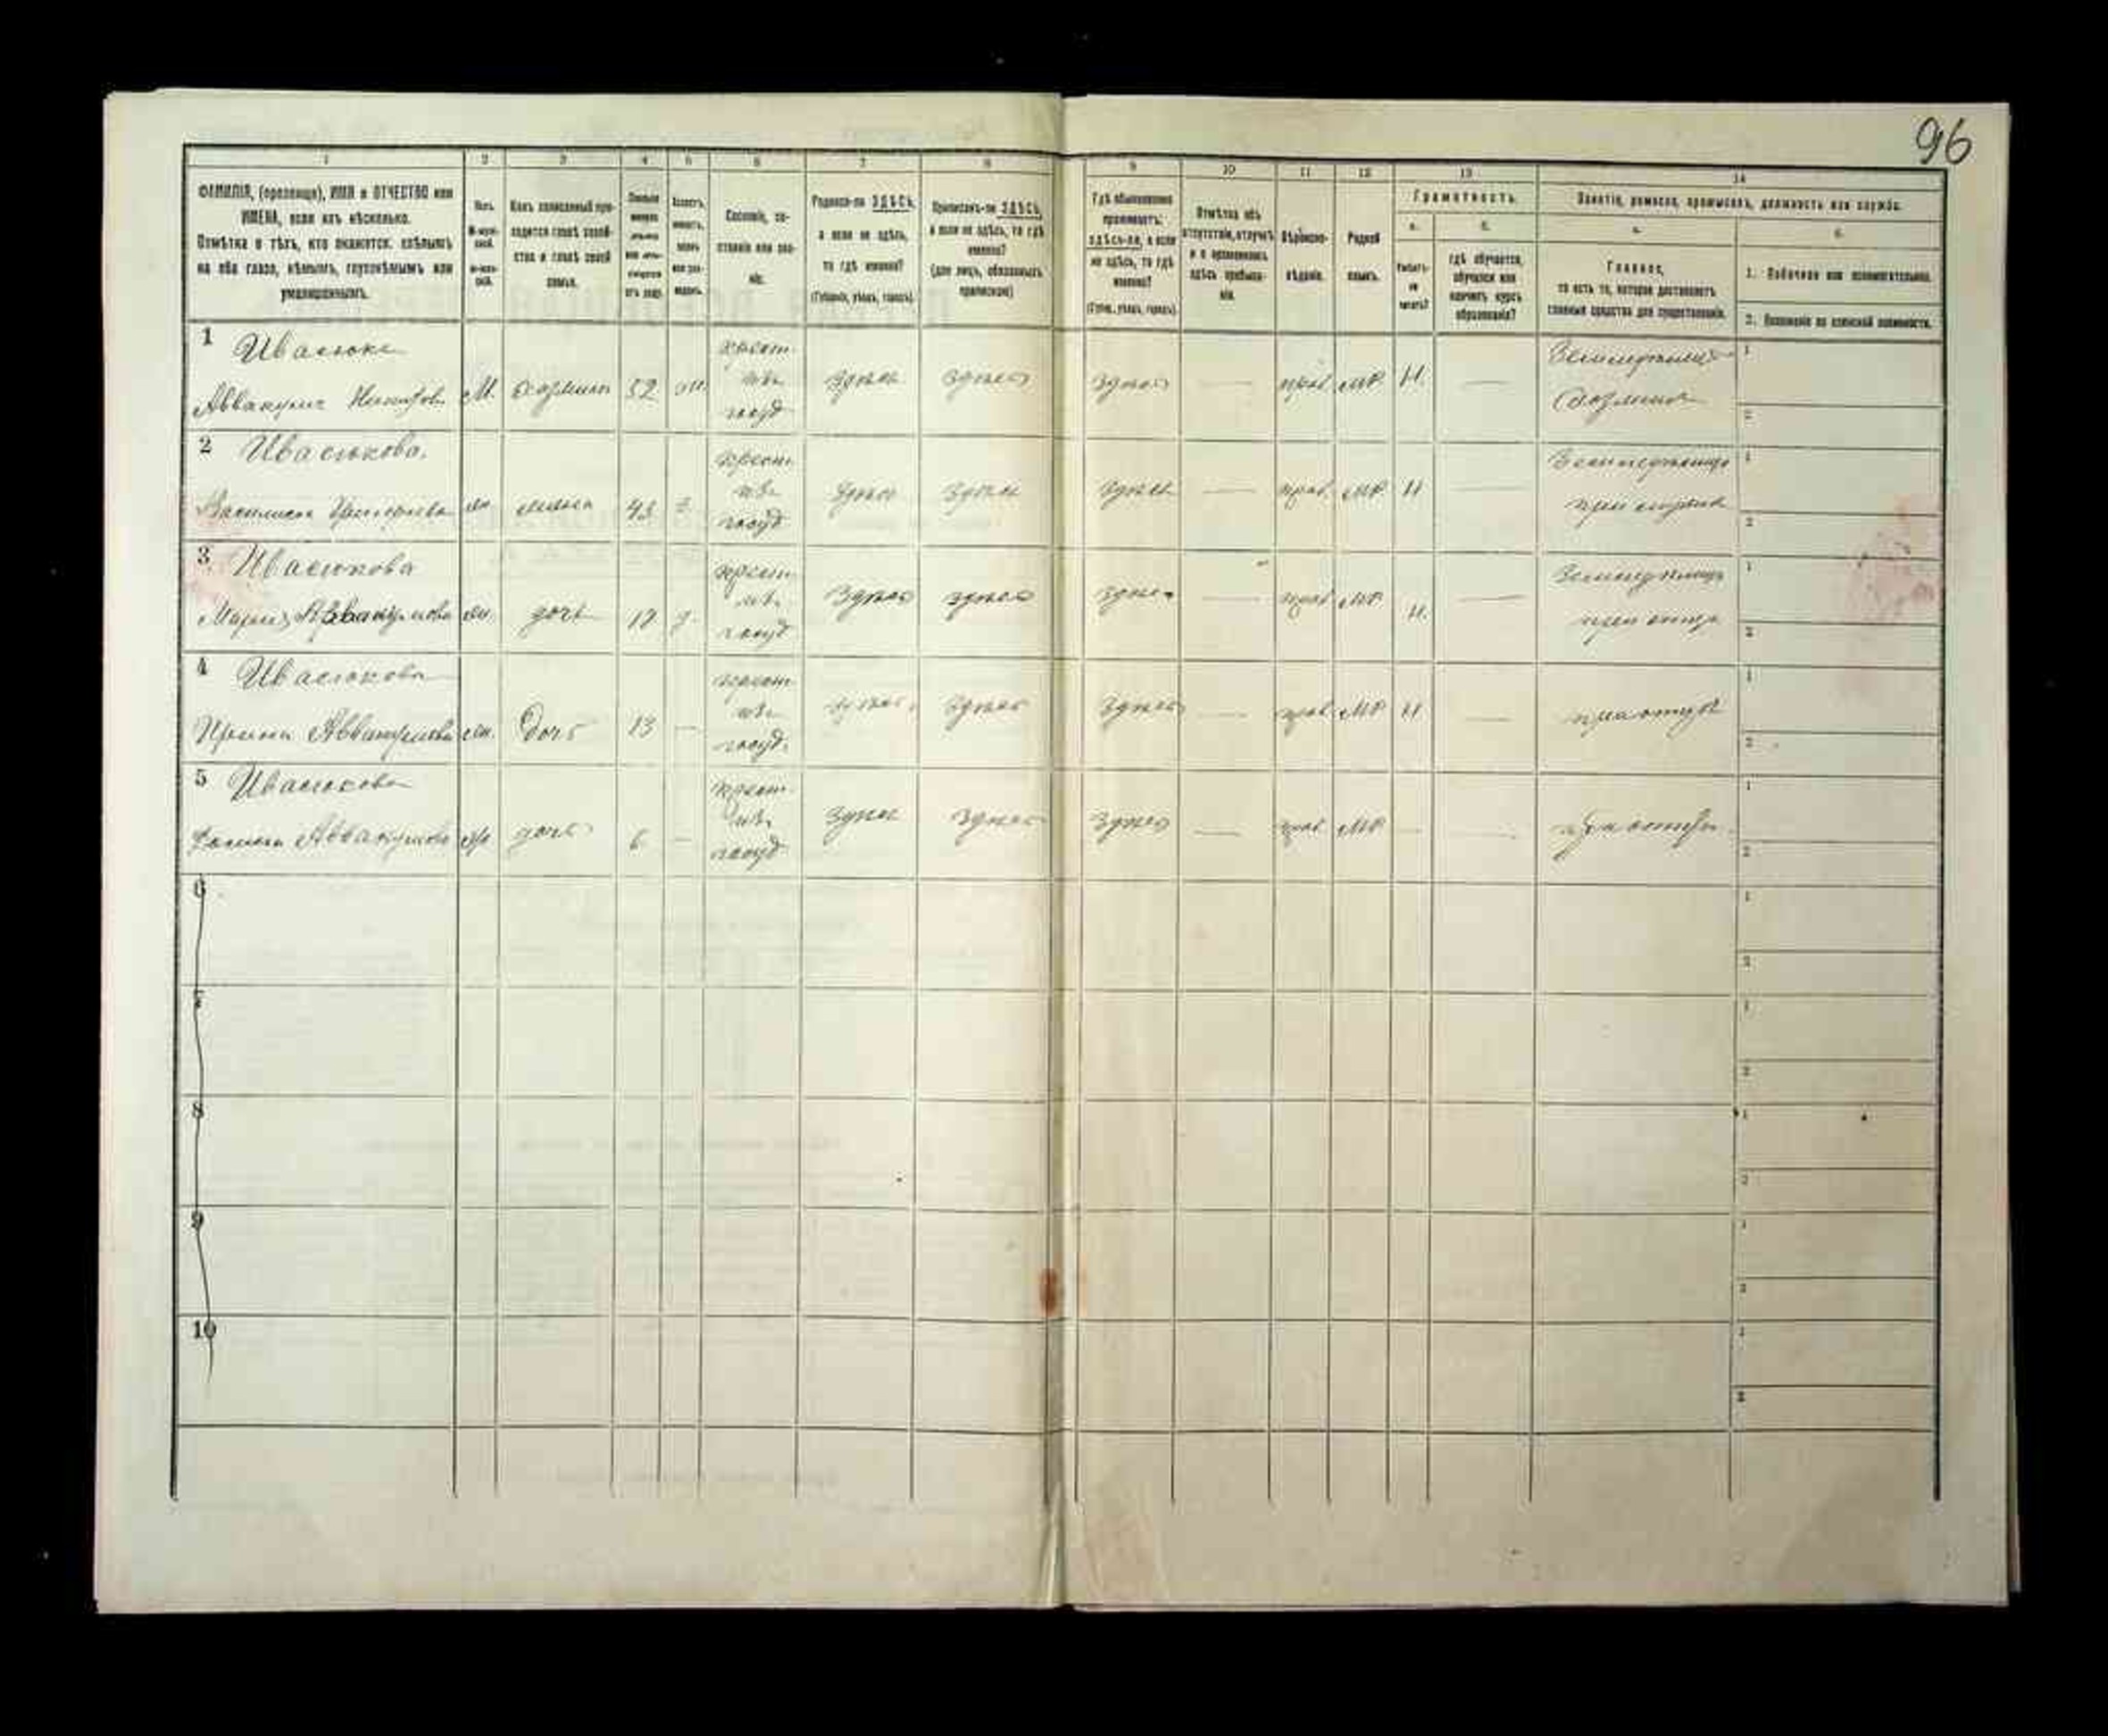 96
1 2 3 4 5 6 7 8 9 10 11 12 13 14
ФАМИЛІЯ, (прозвище), ИМЯ и ОТЧЕСТВО или
ИМЕНА, если ихъ нѣсколько.
Отмѣтка о тѣхъ, кто окажется: слѣпымъ
на оба глаза, нѣмымъ, глухонѣмымъ или
умалишеннымъ.
Полъ.
Какъ записанный при-
ходится главѣ хозяй-
ства и главѣ своей
семьи.
Сословіе, со-
стояніе или зва-
ніе.
Родился-ли ЗДѢСЬ,
а если не здѣсь,
то гдѣ именно?
(Губернія, уѣздъ, городъ).
Приписанъ-ли ЗДѢСЬ,
а если не здѣсь, то гдѣ
именно?
(для лицъ, обязанныхъ
припискою)
Гдѣ обыкновенно
проживаетъ:
здѣсь-ли, а если
не здѣсь, то гдѣ
именно?
(Губер., уѣздъ, городъ).
Отмѣтка объ
отсутствіи, отлучкѣ
и о временномъ
здѣсь пребыва-
ніи.
Вѣроиспо-
вѣданіе.
Родной
языкъ.
Грамотность.
а. б.
Умѣетъ-
ли
читать?
гдѣ обучается,
обучался или
кончилъ курсъ
образованія?
Занятіе, ремесло, промыселъ, должность или служба.
а. б.
Главное,
то есть то, которое доставляетъ
главныя средства для существованія.
1. Побочное или вспомогательное.
2. Положеніе по воинской повинности.
1 Ивасюкъ
Аввакумъ М. хозяинъ 52 крест. изъ госуд. здѣсь здѣсь здѣсь — прав. МР Н. — Земледѣлецъ (хозяинъ 1 2
2 Ивасюкова
Василиса жена 43 крест. изъ госуд. здѣсь здѣсь здѣсь — прав. МР Н — при мужѣ 1 2
3 Ивасюкова
Аввакумова дочь 17 крест. изъ госуд. здѣсь здѣсь здѣсь — прав МР Н. — при отцѣ 1 2
4 Ивасюкова
Аввакумова дочь 13 — крест. изъ госуд. здѣсь здѣсь здѣсь — прав МР Н — при отцѣ 1 2
5 Ивасюкова
Аввакумова дочь 6 — крест. изъ госуд здѣсь здѣсь здѣсь — прав МР — — при отцѣ 1 2
6 1 2
7 1 2
8 1 2
9 1 2
10 1 2